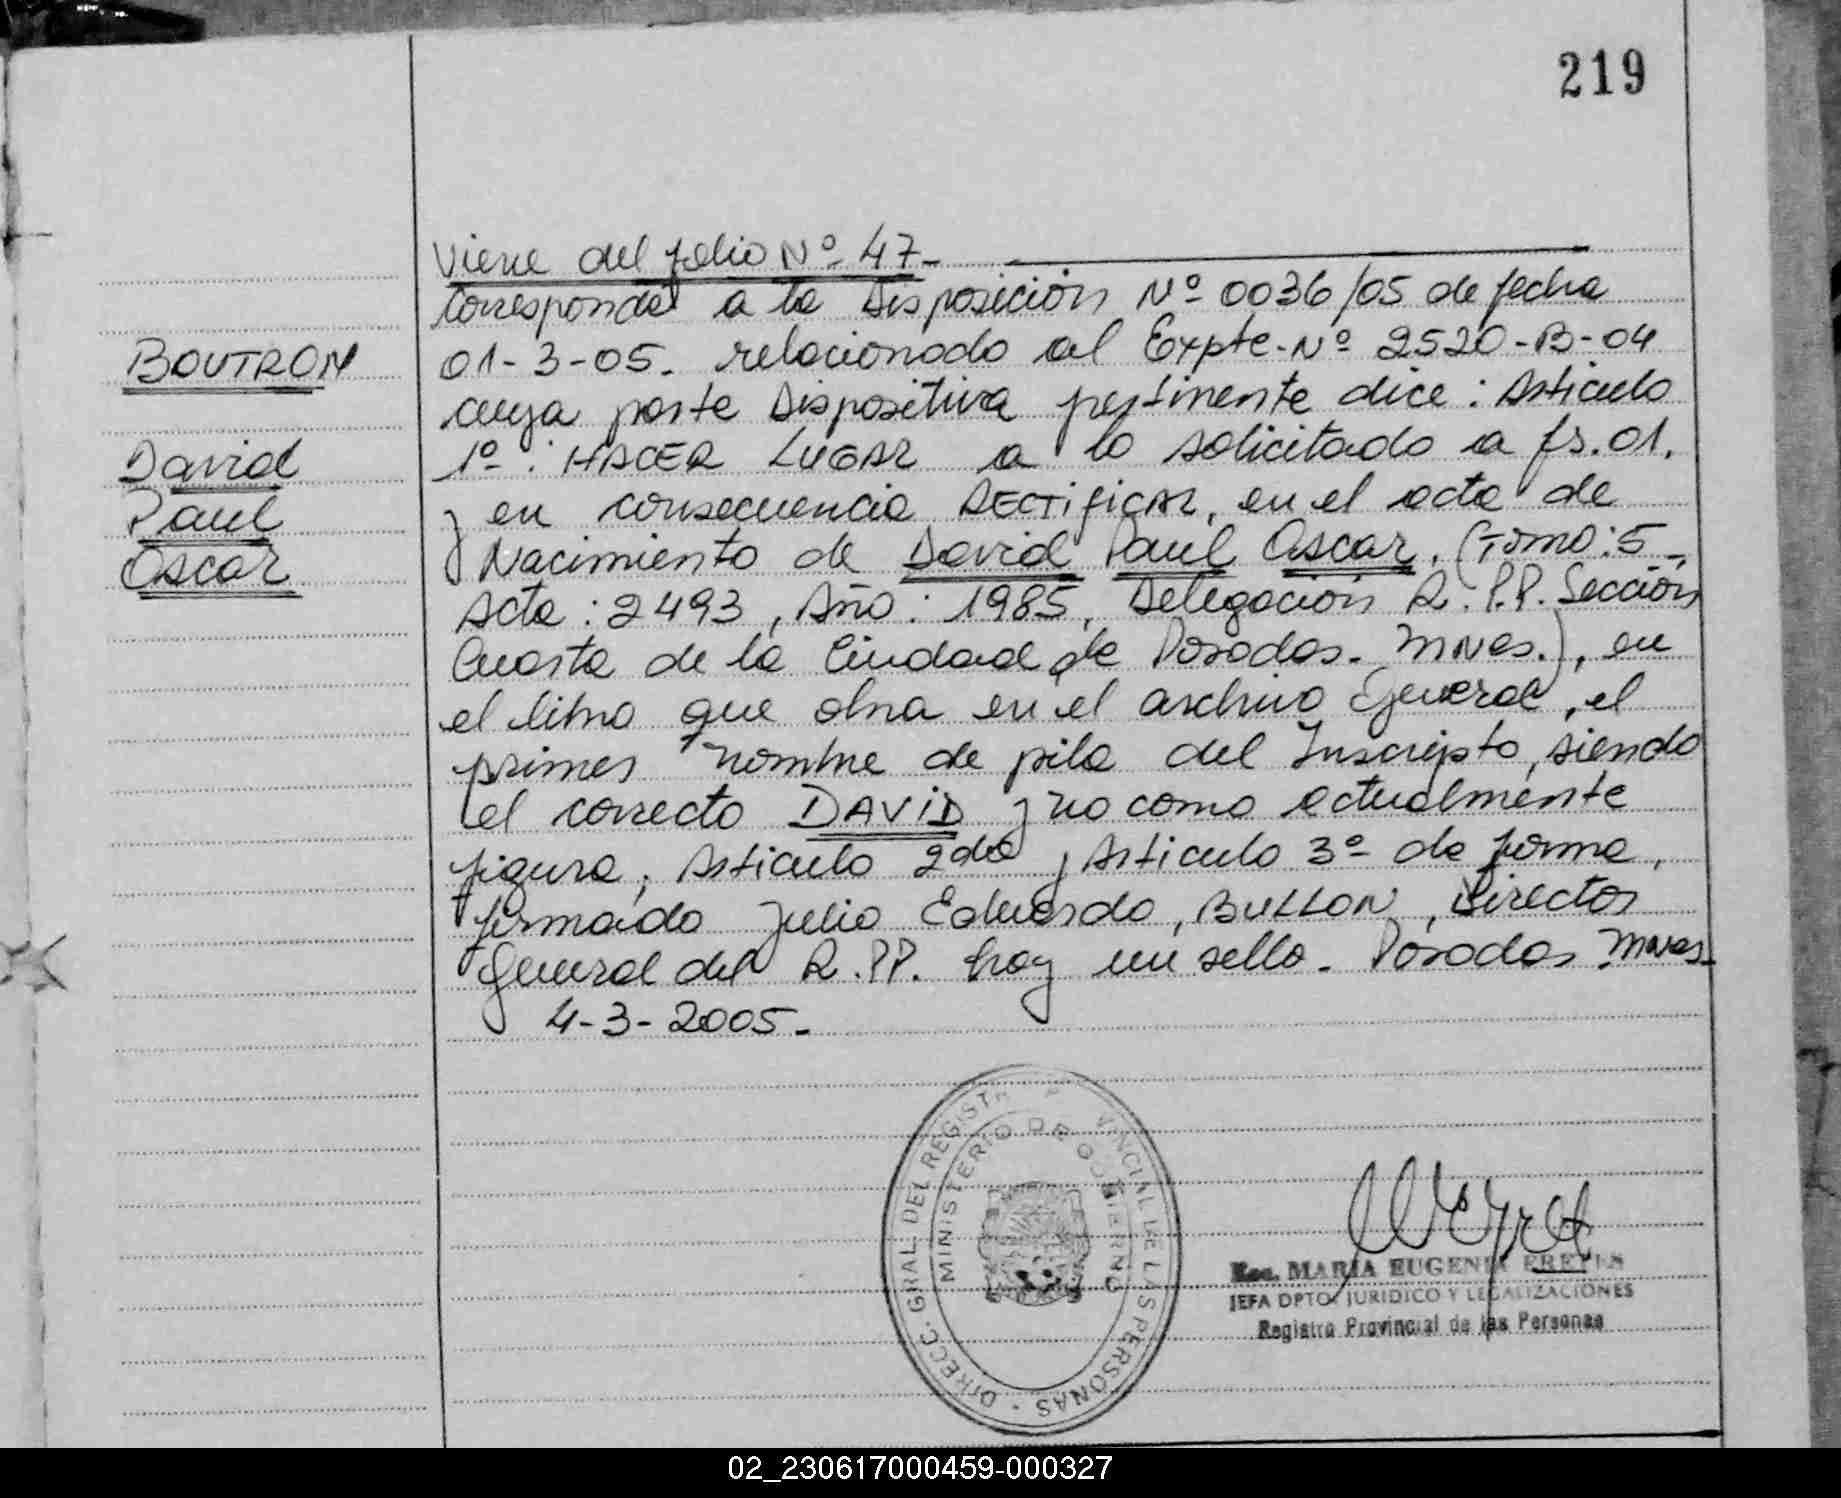 219
Viene del folio Nº 47-
BOUTRON
David
Paul
Oscar
Corresponde a la Disposición Nº 0036/05 de fecha
01-3-05. relacionado al Expte-Nº 2520-B-04
cuya parte Dispositiva pertinente dice: Articulo
1º: HACER LUGAR a lo solicitado a fs.01.
y en consecuencia RECTIFICAR, en el acta de
Nacimiento de David Paul Oscar. (Tomo:5-,
Acta: 2493, Año: 1985, Delegación R.P.P. Sección
Cuarta de la Ciudad de Posadas- Mnes.), en
el libro que obra en el archivo General, el
primer nombre de pila del Inscripto, siendo
el correcto DAVID y no como actualmente
figura, Articulo 2do y Articulo 3º de forma,
firmado Julio Eduardo, BULLON, Director
General del R.PP. hay un sello- Posadas Mnes-
4-3-2005-
DIRECC. GRAL. DEL REGISTR PROVINCIAL DE LAS PERSONAS
MINISTERIO DE GOBIERNO
Esc. MARIA EUGENIA
JEFA DPTO. JURIDICO Y LEGALIZACIONES
Registro Provincial de las Personas
02_230617000459-000327